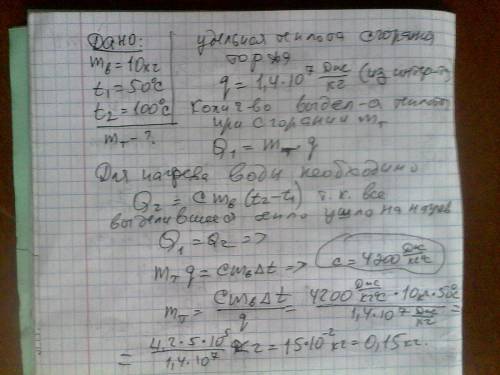 Дано:
m_в = 10кг
t₁ = 50°C
t₂ = 100°C
m_т - ?
удельная теплота сгорания
торфа
q = 1,4·10⁷ Дж/кг (из интер-та)
Кол-во выдел-я теплоты
при сгорании m_т
Q₁ = m_т q
Для нагрева воды необходимо
Q₂ = c m_в (t₂-t₁) т.к. все
выделившееся тепло ушло на нагрев
Q₁ = Q₂ =>
m_т q = c m_в Δt => c = 4200 Дж/кг°C
m_т = c m_в Δt / q = 4200 Дж/кг°C · 10кг · 50°C / 1,4·10⁷ Дж/кг =
= 4,2·5·10⁵ / 1,4·10⁷ кг = 15·10⁻² кг = 0,15кг.